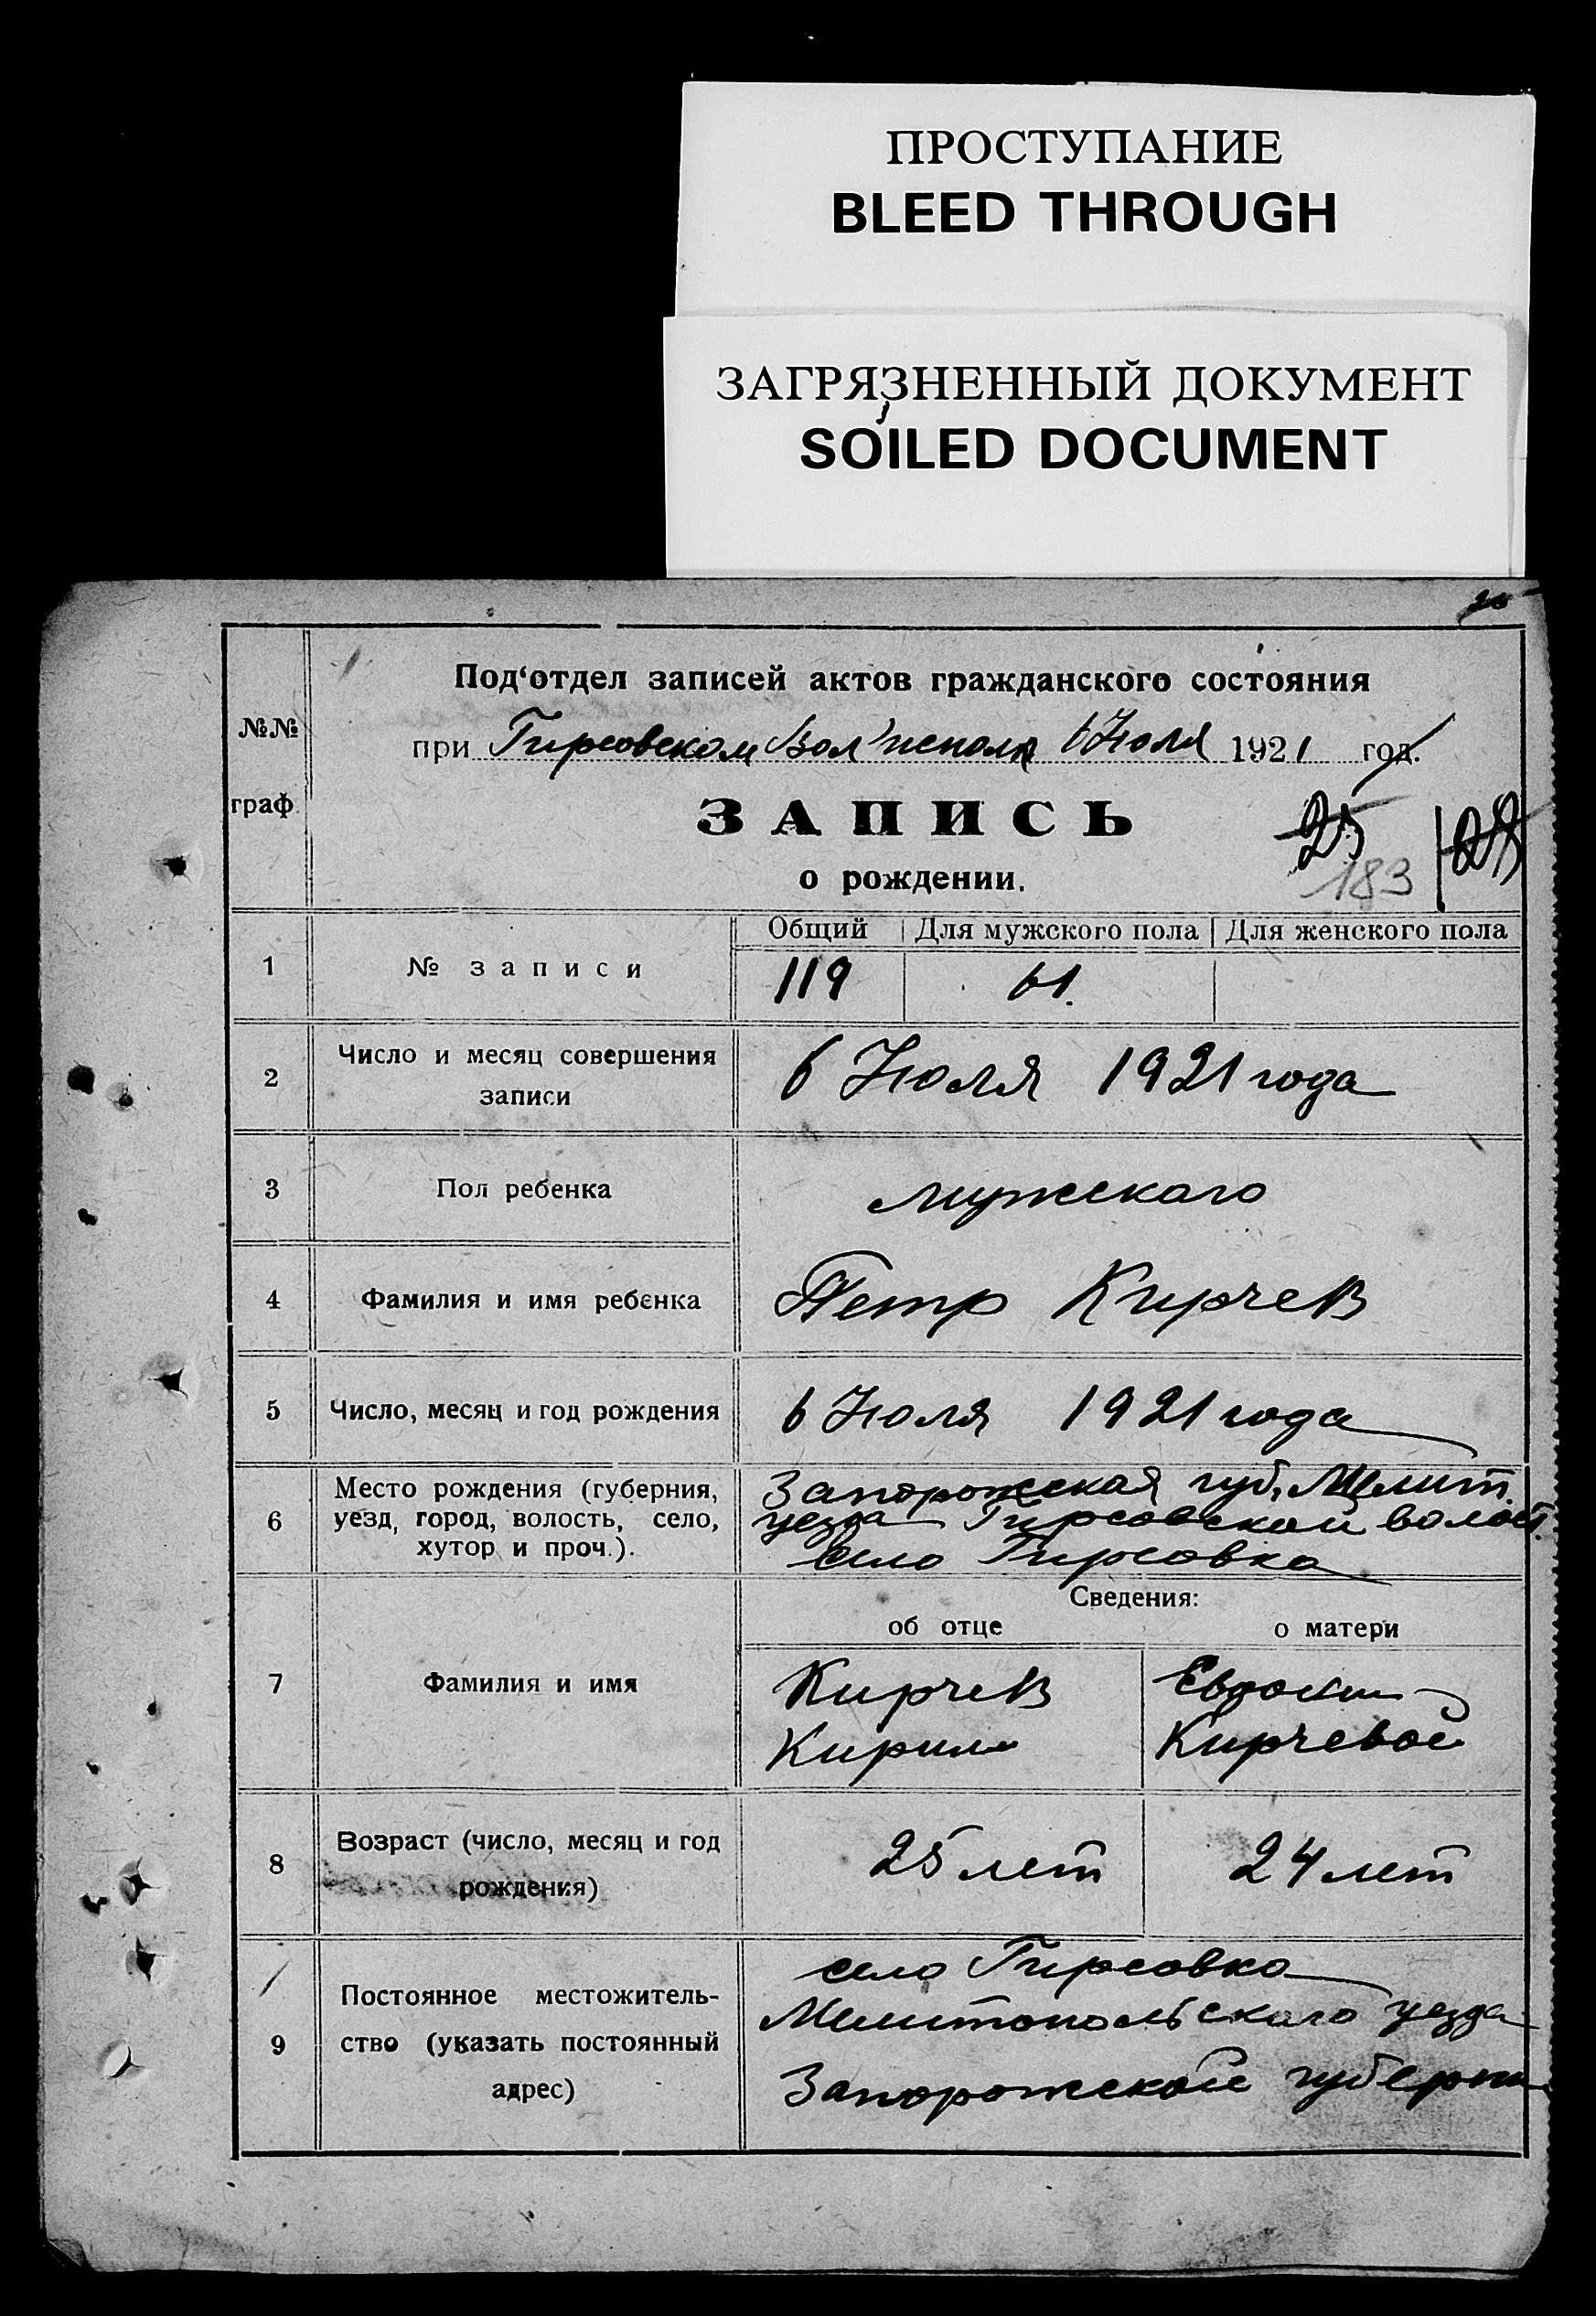 ПРОСТУПАНИЕ
BLEED THROUGH
ЗАГРЯЗНЕННЫЙ ДОКУМЕНТ
SOILED DOCUMENT
Под‘отдел записей актов гражданского состояния
при Гирсовском Вол'исполк 6 Июля 1921 год.
№№
граф.
ЗАПИСЬ
о рождении.
25
183
128
Общий Для мужского пола Для женского пола
1 № записи 119 61.
2 Число и месяц совершения
записи
6 Июля 1921 года
3 Пол ребенка мужскаго
4 Фамилия и имя ребенка Петр Кирчев
5 Число, месяц и год рождения 6 Июля 1921 года
6 Место рождения (губерния,
уезд, город, волость, село,
хутор и проч.).
Запорожская губ, Мелит.
уезда Гирсовской волост.
село Гирсовка
Сведения:
об отце о матери
7 Фамилия и имя
Кирчев
Кирил
Евдоки
Кирчевой
8 Возраст (число, месяц и год
рождения)
25 лет 24 лет
9 Постоянное местожитель-
ство (указать постоянный
адрес)
село Гирсовка
Мелитопольскаго уезда
Запорожской губерни